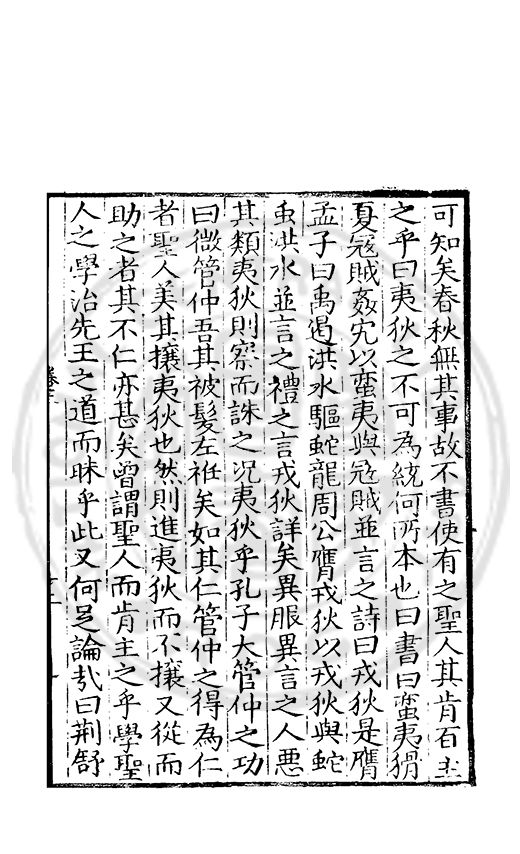 可知矣春秋無其事故不書使有之聖人其肯百主
之乎曰夷狄之不可為統何所本也曰書曰蠻夷猾
夏冦賊姦宄以蠻夷與冦賊並言之詩曰戎狄是膺
孟子曰禹遏洪水驅蛇龍周公膺戎狄以戎狄與蛇
虫洪水並言之禮之言戎狄詳矣異服異言之人惡
其類夷狄則察而誅之况夷狄乎孔子大管仲之功
曰微管仲吾其被髮左袵矣如其仁管仲之得為仁
者聖人美其攘夷狄也然則進夷狄而不攘又從而
助之者其不仁亦甚矣曾謂聖人而肯主之乎學聖
人之學治先王之道而昧乎此又何足論㢤曰荆舒